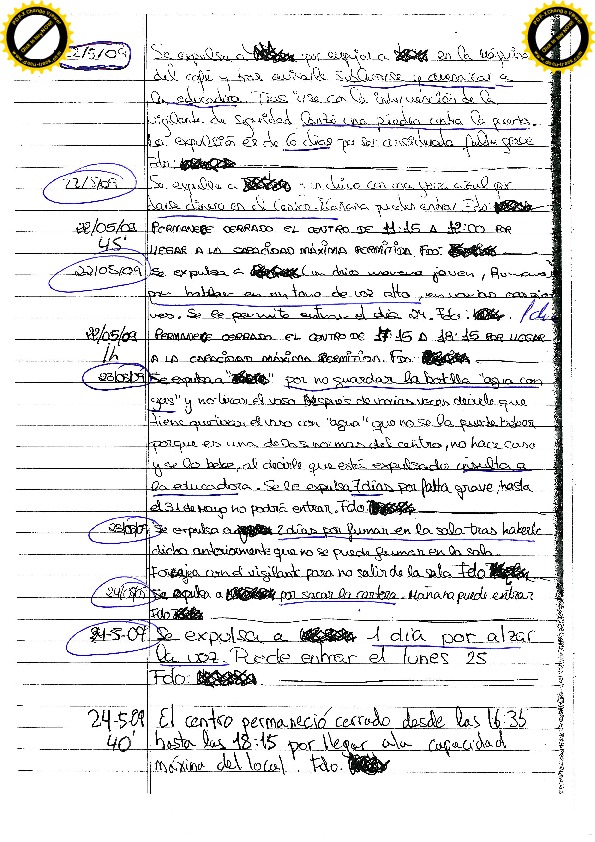 22/5/09 Se expulsa a por escupir a en la máquina
del café y por subirse y amenazar a
la educadora. Tras irse con la intervención de la
vigilante de seguridad lanzó una piedra contra la puerta.
La expulsión es de 6 días por ser considerada falta grave
Fdo:
22/5/09 Se expulsa a un chico con una gorra azul por
dinero en el Centro. Mañana puede entrar Fdo
22/05/09 PERMANECE CERRADO EL CENTRO DE 11:15 A 12:00 POR
45' LLEGAR A LA CAPACIDAD MÁXIMA PERMITIDA. FDO:
22/05/09 Se expulsa a (un chico moreno joven,
por hablar en un tono de voz alto, en varias ocasio
nes. Se le permite entrar el día 24. Fdo: 1 día
22/05/09 PERMANECE CERRADO EL CENTRO DE 17:15 A 18:15 POR LLEGAR
1h A LA CAPACIDAD MÁXIMA PERMITIDA. FDO:
23/05/09 Se expulsa a " " por no guardar la botella "agua con
gas" y no tirar el vaso después de varias veces decirle que
tiene que tirar el vaso con "agua" que no se la puede beber
porque es una de las normas del centro, no hace caso
y se lo bebe, al decirle que está expulsado insulta a
la educadora. Se le expulsa 7 días por falta grave, hasta
el 31 de mayo no podrá entrar. Fdo:
23/05/09 Se expulsa a 2 días por fumar en la sala tras haberle
dicho anteriormente que no se puede fumar en la sala.
Forcejea con el vigilante para no salir de la sala Fdo
24/5/09 Se expulsa a por sacar la cartera. Mañana puede entrar
Fdo
24-5-09 Se expulsa a 1 día por alzar
la voz. Puede entrar el lunes 25
Fdo:
24-5-09 El centro permaneció cerrado desde las 16:35
40' hasta las 18:15 por llegar a la capacidad
máxima del local. Fdo: